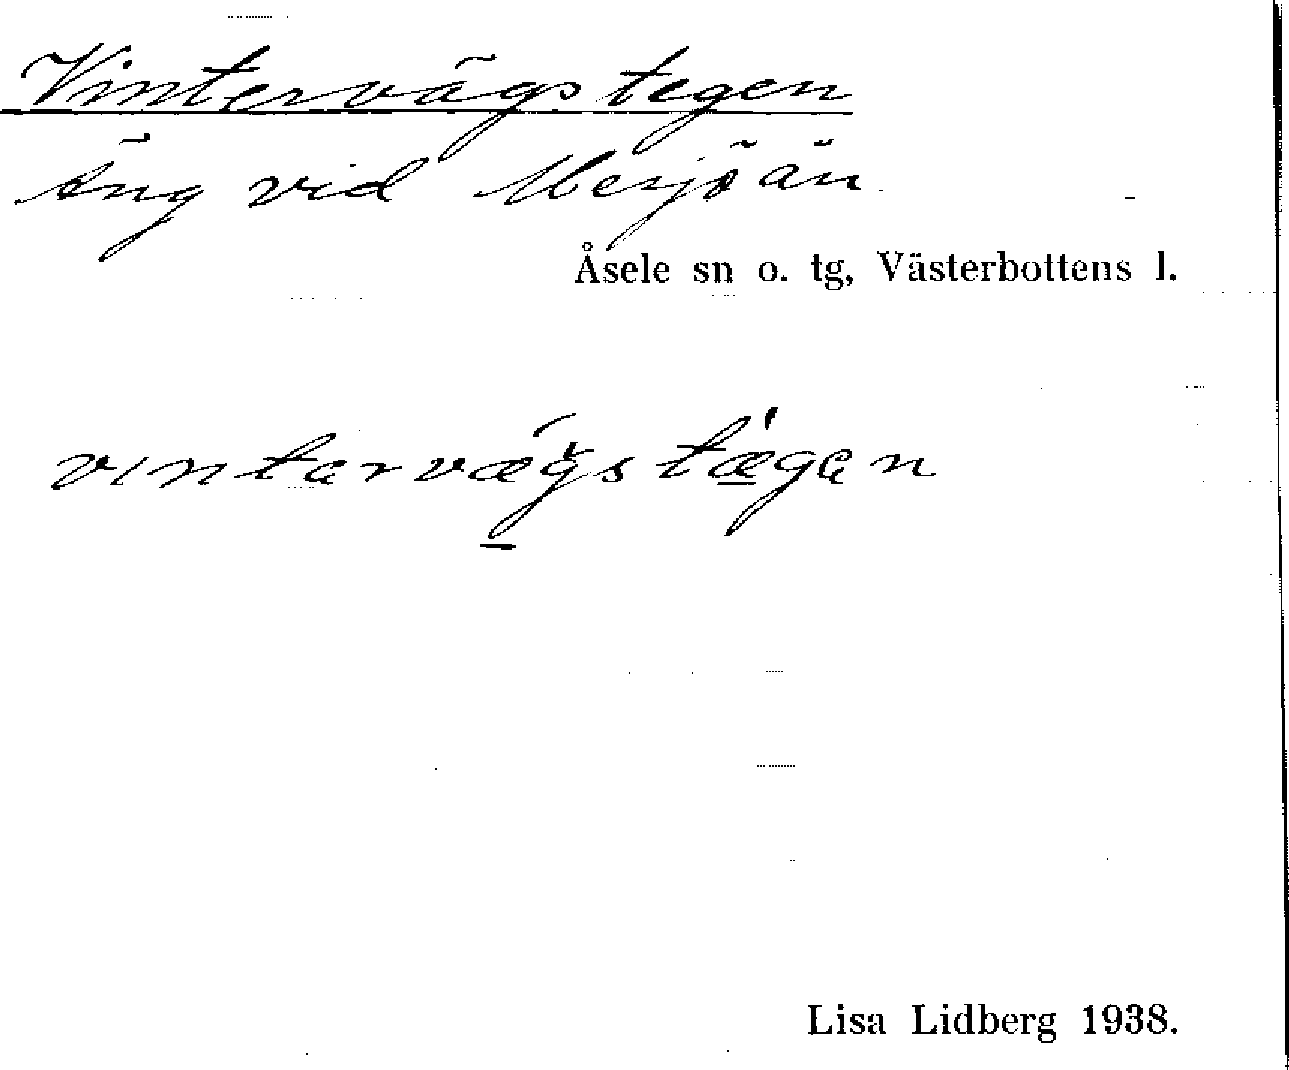 Vintervägstegen
Äng vid Merjöån
Åsele sn o. tg, Västerbottens l.
vıntərvǽgstǽgən
Lisa Lidberg 1938.